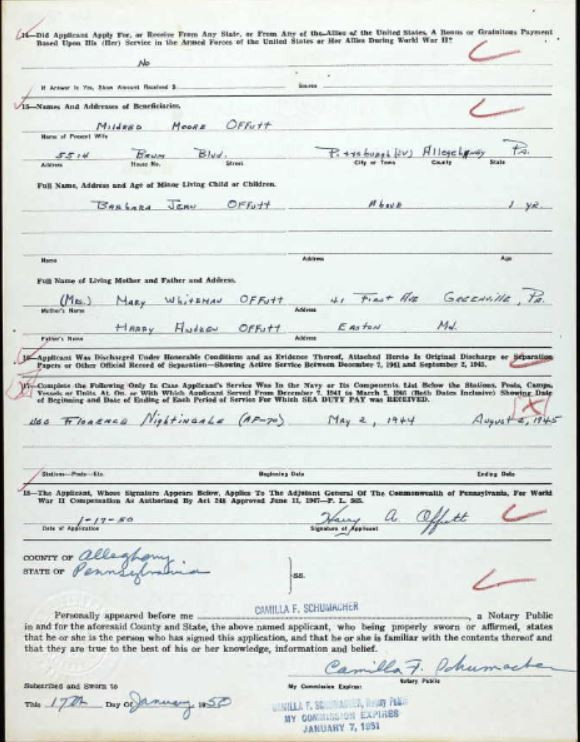 14—Did Applicant Apply For, or Receive From Any State, or From Any of the Allies of the United States, A Bonus or Gratuitous Payment
Based Upon His (Her) Service in the Armed Forces of the United States or Her Allies During World War II?
No
If Answer Is Yes, Show Amount Received $ Source
15—Names And Addresses of Beneficiaries.
Mildred Moore Offutt
Name of Present Wife
5514 Baum Blvd. Pittsburgh (32) Allegheny Pa.
Address House No. Street City or Town County State
Full Name, Address and Age of Minor Living Child or Children.
Barbara Jean Offutt Above 1 yr.
Name Address Age
Full Name of Living Mother and Father and Address.
(Mrs.) Mary Whiteman Offutt 41 First Ave Greenville, Pa.
Mother's Name Address
Harry Andrew Offutt Easton Md.
Father's Name Address
16—Applicant Was Discharged Under Honorable Conditions and as Evidence Thereof, Attached Hereto Is Original Discharge or Separation
Papers or Other Official Record of Separation—Showing Active Service Between December 7, 1941 and September 2, 1945.
17—Complete the Following Only In Case Applicant's Service Was In the Navy or Its Components. List Below the Stations, Posts, Camps,
Vessels or Units, At, On, or With Which Applicant Served From December 7, 1941 to March 2, 1946 (Both Dates Inclusive) Showing Date
of Beginning and Date of Ending of Each Period of Service For Which SEA DUTY PAY was RECEIVED.
USS Florence Nightingale (AP-70) May 2, 1944 August 2, 1945
Stations—Posts—Etc. Beginning Date Ending Date
18—The Applicant, Whose Signature Appears Below, Applies To The Adjutant General Of The Commonwealth of Pennsylvania, For World
War II Compensation As Authorized By Act 248 Approved June 11, 1947—P. L. 565.
1-17-50 Harry A. Offutt
Date of Application Signature of Applicant
COUNTY OF Allegheny
STATE OF Pennsylvania
SS.
Personally appeared before me CAMILLA F. SCHUMACHER, a Notary Public
in and for the aforesaid County and State, the above named applicant, who being properly sworn or affirmed, states
that he or she is the person who has signed this application, and that he or she is familiar with the contents thereof and
that they are true to the best of his or her knowledge, information and belief.
Camilla F. Schumacher
Notary Public
Subscribed and Sworn to My Commission Expires:
This 17th Day Of January 1950
CAMILLA F. SCHUMACHER, Notary Public
MY COMMISSION EXPIRES
JANUARY 7, 1951